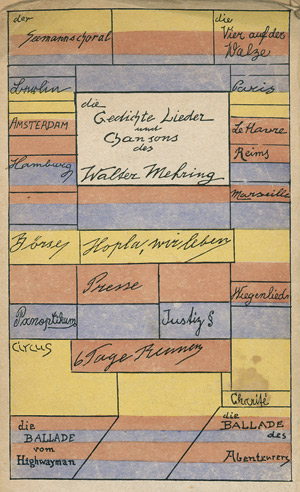 der
Seemannschoral
die
Vier auf der
Walze
London
Paris
die
Gedichte Lieder
und
Chansons
des
Walter Mehring
AMSTERDAM
Le Havre
Reims
Hamburg
Marseille
Börse
Hopla, wir leben
Presse
Wiegenlied
Panoptikum
Justiz §
Circus
6 Tage Rennen
Charité
die
BALLADE
vom
Highwayman
die
BALLADE
des
Abenteurers